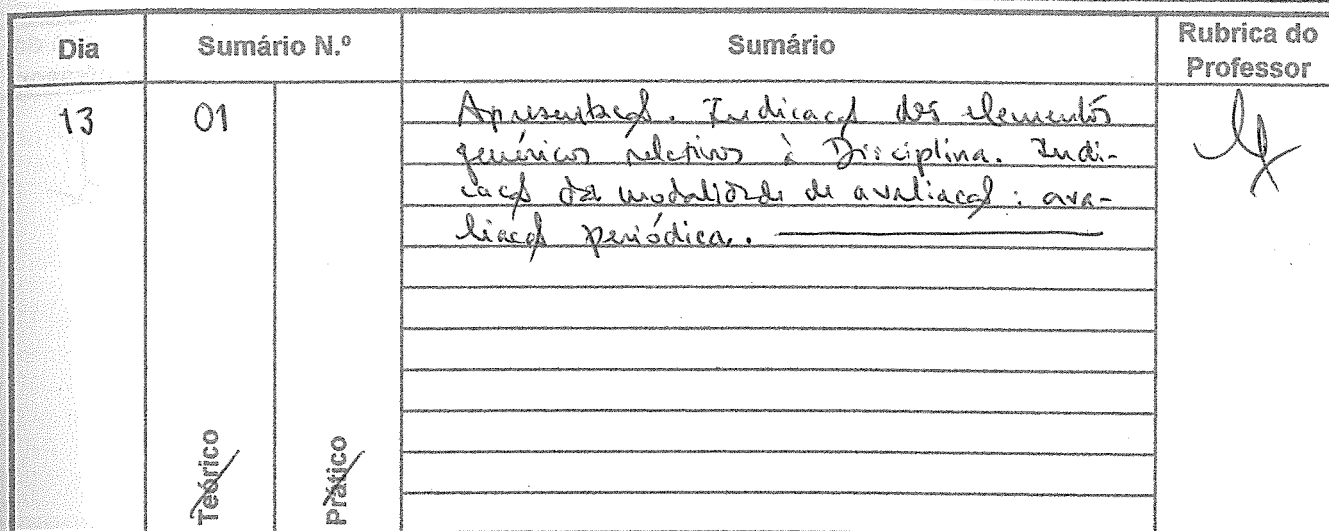 Dia Sumário N.º Sumário Rubrica do Professor
13 01 Apresentação. Indicação dos elementos
genéricos relativos à Disciplina. Indi-
cação da modalidade de avaliação: ava-
liação periódica.
Teórico Prático